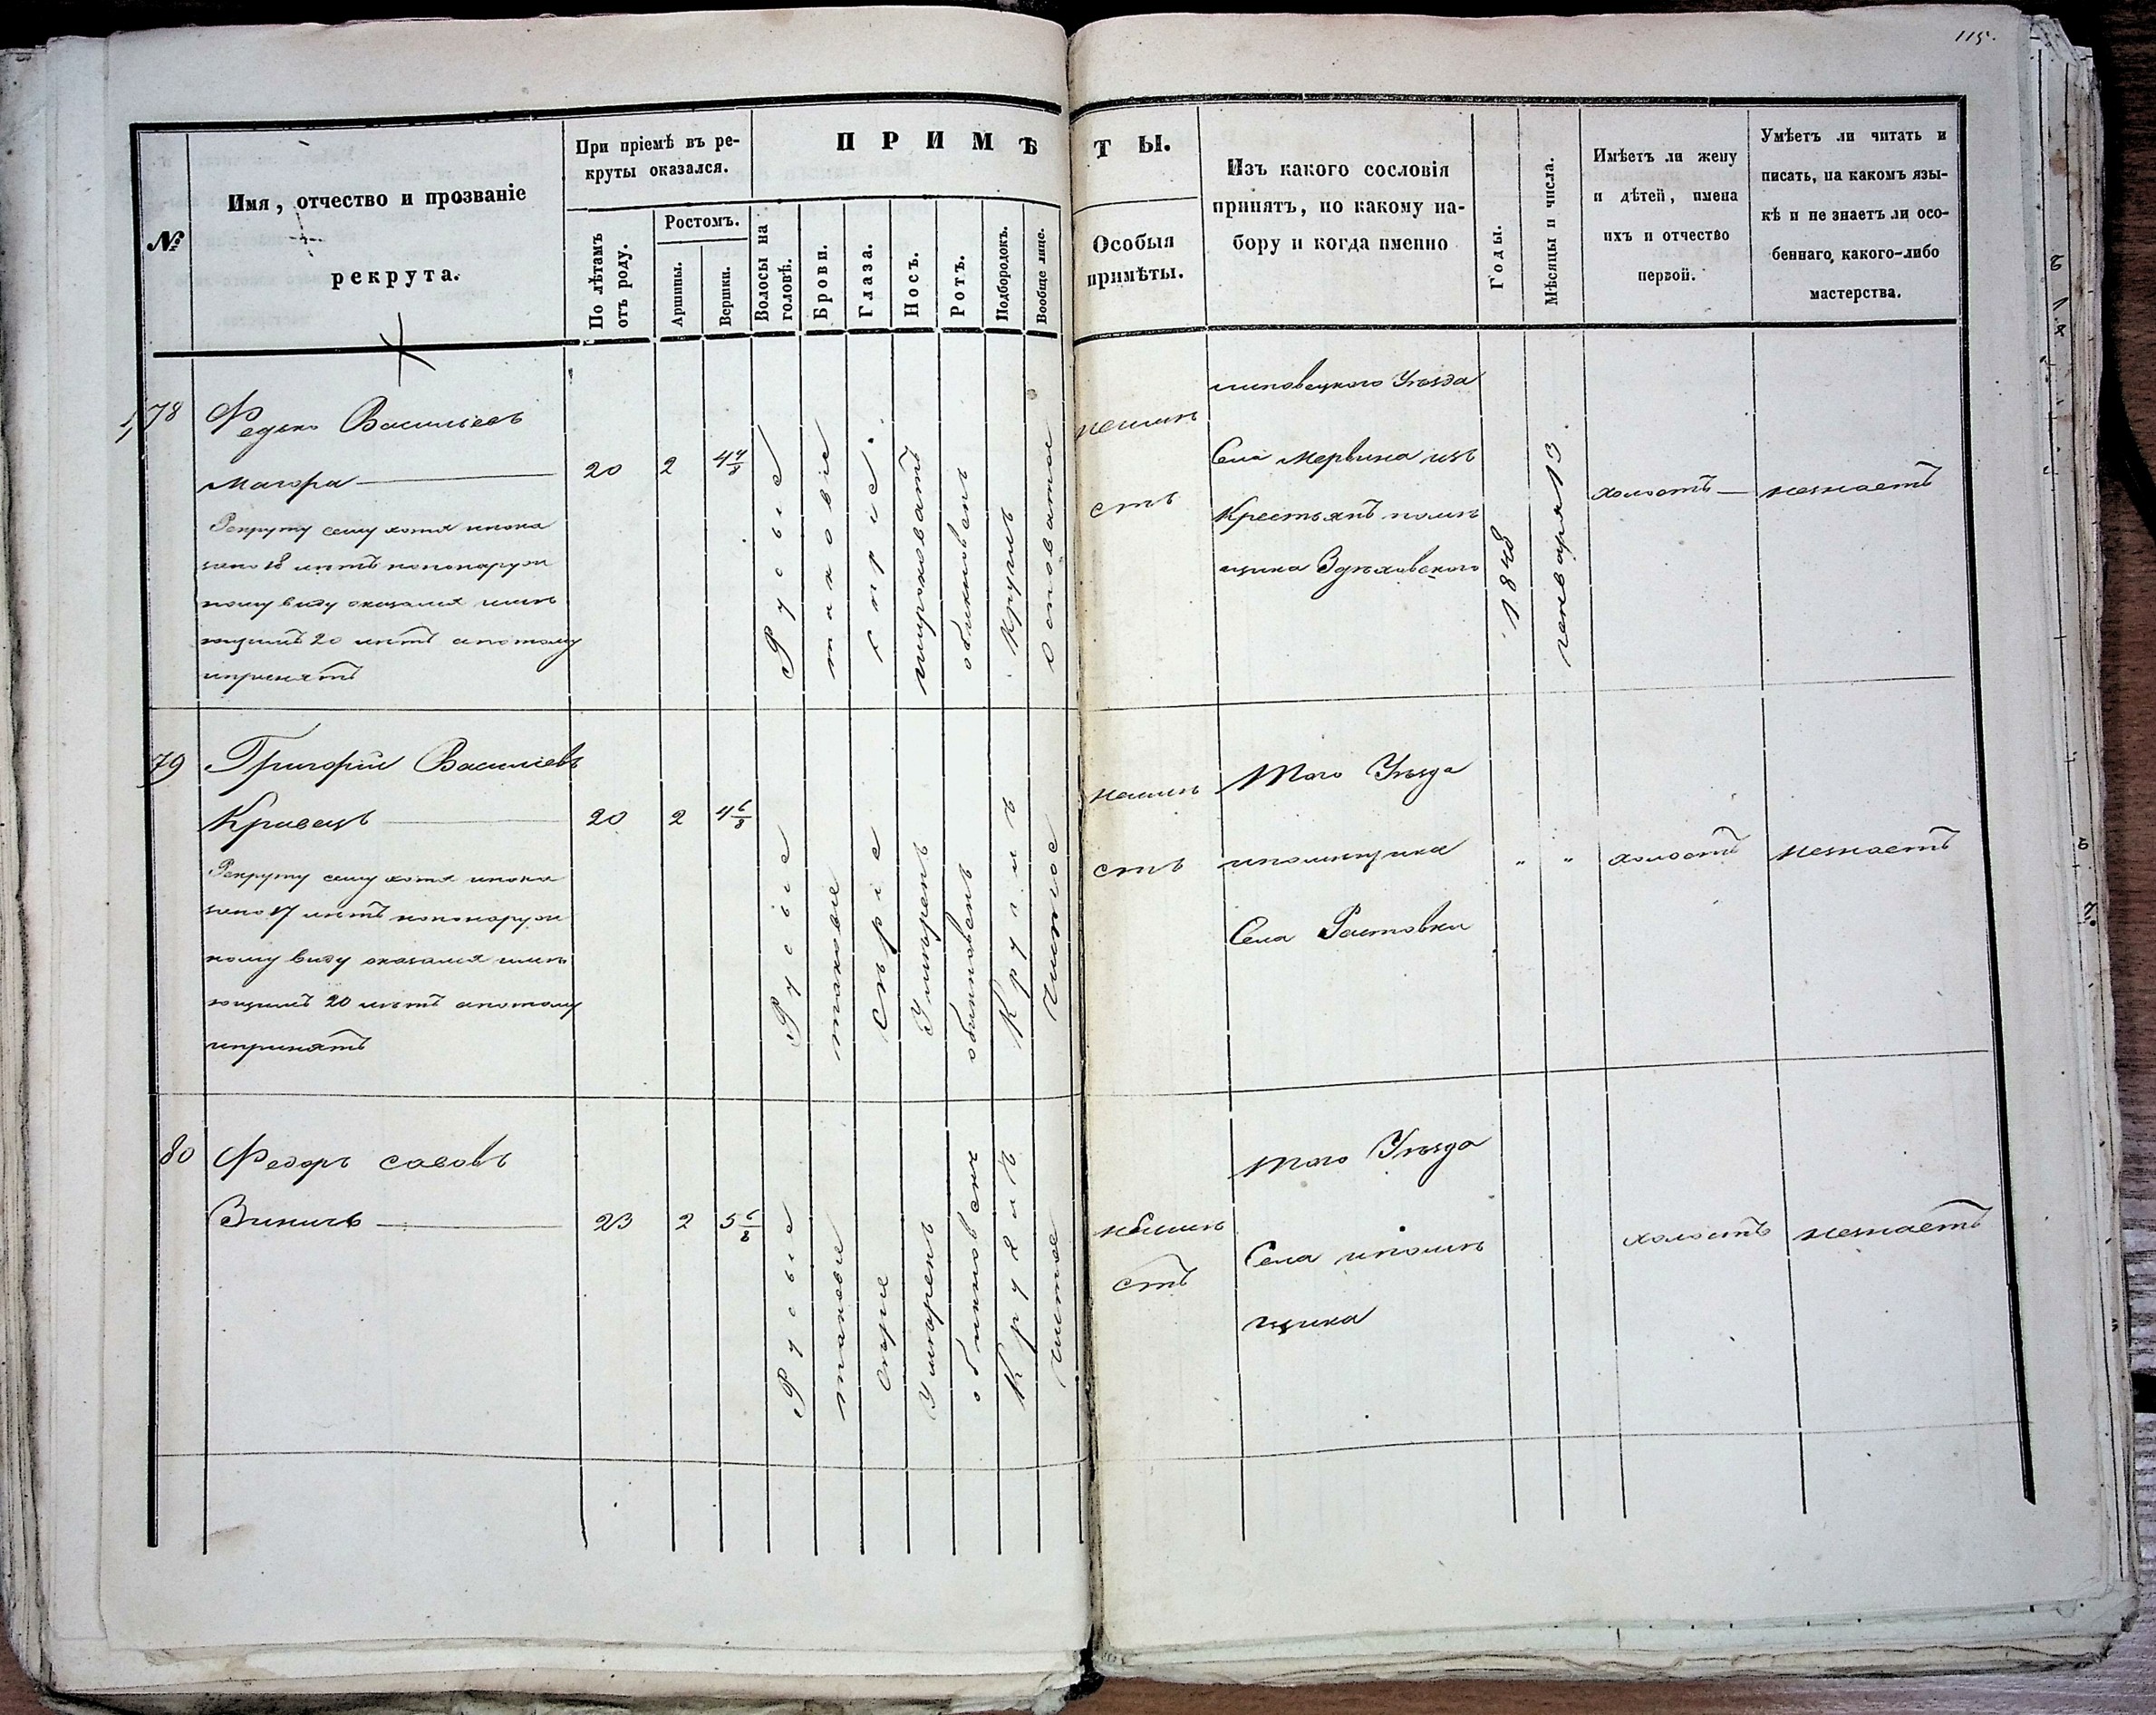 115.
№
Имя, отчество и прозваніе
рекрута.
При пріемѣ въ ре-
круты оказался.
По лѣтамъ
отъ роду.
Ростомъ.
Аршины.
Вершки.
ПРИМѢ
Волосы на
головѣ.
Брови.
Глаза.
Носъ.
Ротъ.
Подбородокъ.
Вообще лице.
ТЫ.
Особыя
примѣты.
Изъ какого сословія
принятъ, по какому на-
бору и когда именно
Годы.
Мѣсяцы и числа.
Имѣетъ ли жену
и дѣтей, имена
ихъ и отчество
первой.
Умѣетъ ли читать и
писать, на какомъ язы-
кѣ и не знаетъ ли осо-
беннаго, какого-либо
мастерства.
78
Федько Васильевъ
Магора
Рекруту сему хотя и пока
зано 18 лѣтъ но по наруж
ному виду оказался имѣ
ющимъ 20 лѣтъ а потому
и принятъ
20
2
4 4/8
Русые
таковіе
сѣріе
широковатъ
обикновенъ
Круглъ
Осповатое
неимѣ
етъ
липовецкого Уѣзда
Села Мервина изъ
Крестьянъ помѣ
щика Здѣховского
1848
генваря 13.
холостъ
незнаетъ
79
Григорій Василіевъ
Кравецъ
Рекруту сему хотя и пока
зано 17 лѣтъ но по наруж
ному виду оказался имѣ
ющимъ 20 лѣтъ а потому
и принятъ
20
2
4 6/8
Русые
таковые
Сѣріе
Умѣренъ
обикновенъ
Круглъ
Чистое
неимѣ
етъ
Того Уѣзда
и помѣщика
Села Ростовки
" "
холостъ
незнаетъ
80
Федоръ Савовъ
Зиничъ
23
2
5 6/8
Русые
таковые
Сѣрые
Умѣренъ
обикновенъ
Круглъ
Чистое
неимѣ
етъ
Того Уѣзда
Села и помѣ
щика
холостъ
незнаетъ